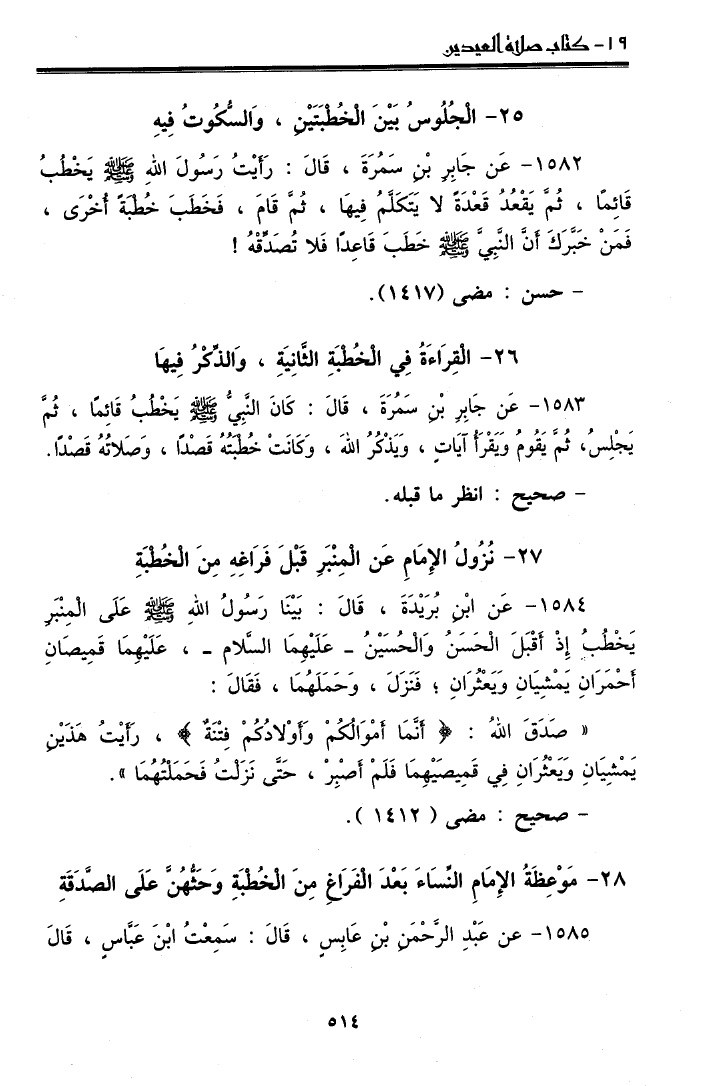 ١٩- كتاب صلاة العيدين
٢٥- الْجُلُوسُ بَيْنَ الْخُطْبَتَيْنِ ، وَالسُّكُوتُ فِيهِ
١٥٨٢- عَن جَابِرِ بْنِ سَمُرَةَ ، قَالَ : رَأَيْتُ رَسُولَ اللهِ ﷺ يَخْطُبُ
قَائِمًا ، ثُمَّ يَقْعُدُ قَعْدَةً لا يَتَكَلَّمُ فِيهَا ، ثُمَّ قَامَ ، فَخَطَبَ خُطْبَةً أُخْرَى ،
فَمَنْ خَبَّرَكَ أَنَّ النَّبِيَّ ﷺ خَطَبَ قَاعِدًا فَلا تُصَدِّقْهُ !
- حسن : مضى (١٤١٧).
٢٦- الْقِرَاءَةُ فِي الْخُطْبَةِ الثَّانِيَةِ ، وَالذِّكْرُ فِيهَا
١٥٨٣- عَن جَابِرِ بْنِ سَمُرَةَ ، قَالَ : كَانَ النَّبِيُّ ﷺ يَخْطُبُ قَائِمًا ، ثُمَّ
يَجْلِسُ، ثُمَّ يَقُومُ وَيَقْرَأُ آيَاتٍ ، وَيَذْكُرُ اللهَ ، وَكَانَتْ خُطْبَتُهُ قَصْدًا ، وَصَلاتُهُ قَصْدًا.
- صحيح : انظر ما قبله.
٢٧- نُزُولُ الإِمَامِ عَن الْمِنْبَرِ قَبْلَ فَرَاغِهِ مِنَ الْخُطْبَةِ
١٥٨٤- عَن ابْنِ بُرَيْدَةَ ، قَالَ : بَيْنَا رَسُولُ اللهِ ﷺ عَلَى الْمِنْبَرِ
يَخْطُبُ إِذْ أَقْبَلَ الْحَسَنُ وَالْحُسَيْنُ - عَلَيْهِمَا السَّلام - ، عَلَيْهِمَا قَمِيصَانِ
أَحْمَرَانِ يَمْشِيَانِ وَيَعْثُرَانِ ؛ فَنَزَلَ ، وَحَمَلَهُمَا ، فَقَالَ :
« صَدَقَ اللهُ : ﴿ أَنَّمَا أَمْوَالُكُمْ وَأَوْلادُكُمْ فِتْنَةٌ ﴾ ، رَأَيْتُ هَذَيْنِ
يَمْشِيَانِ وَيَعْثُرَانِ فِي قَمِيصَيْهِمَا فَلَمْ أَصْبِرْ ، حَتَّى نَزَلْتُ فَحَمَلْتُهُمَا ».
- صحيح : مضى ( ١٤١٢ ).
٢٨- مَوْعِظَةُ الإِمَامِ النِّسَاءَ بَعْدَ الْفَرَاغِ مِنَ الْخُطْبَةِ وَحَثُّهُنَّ عَلَى الصَّدَقَةِ
١٥٨٥- عن عَبْدِ الرَّحْمَنِ بْنِ عَابِسٍ ، قَالَ : سَمِعْتُ ابْنَ عَبَّاسٍ ، قَالَ
٥١٤